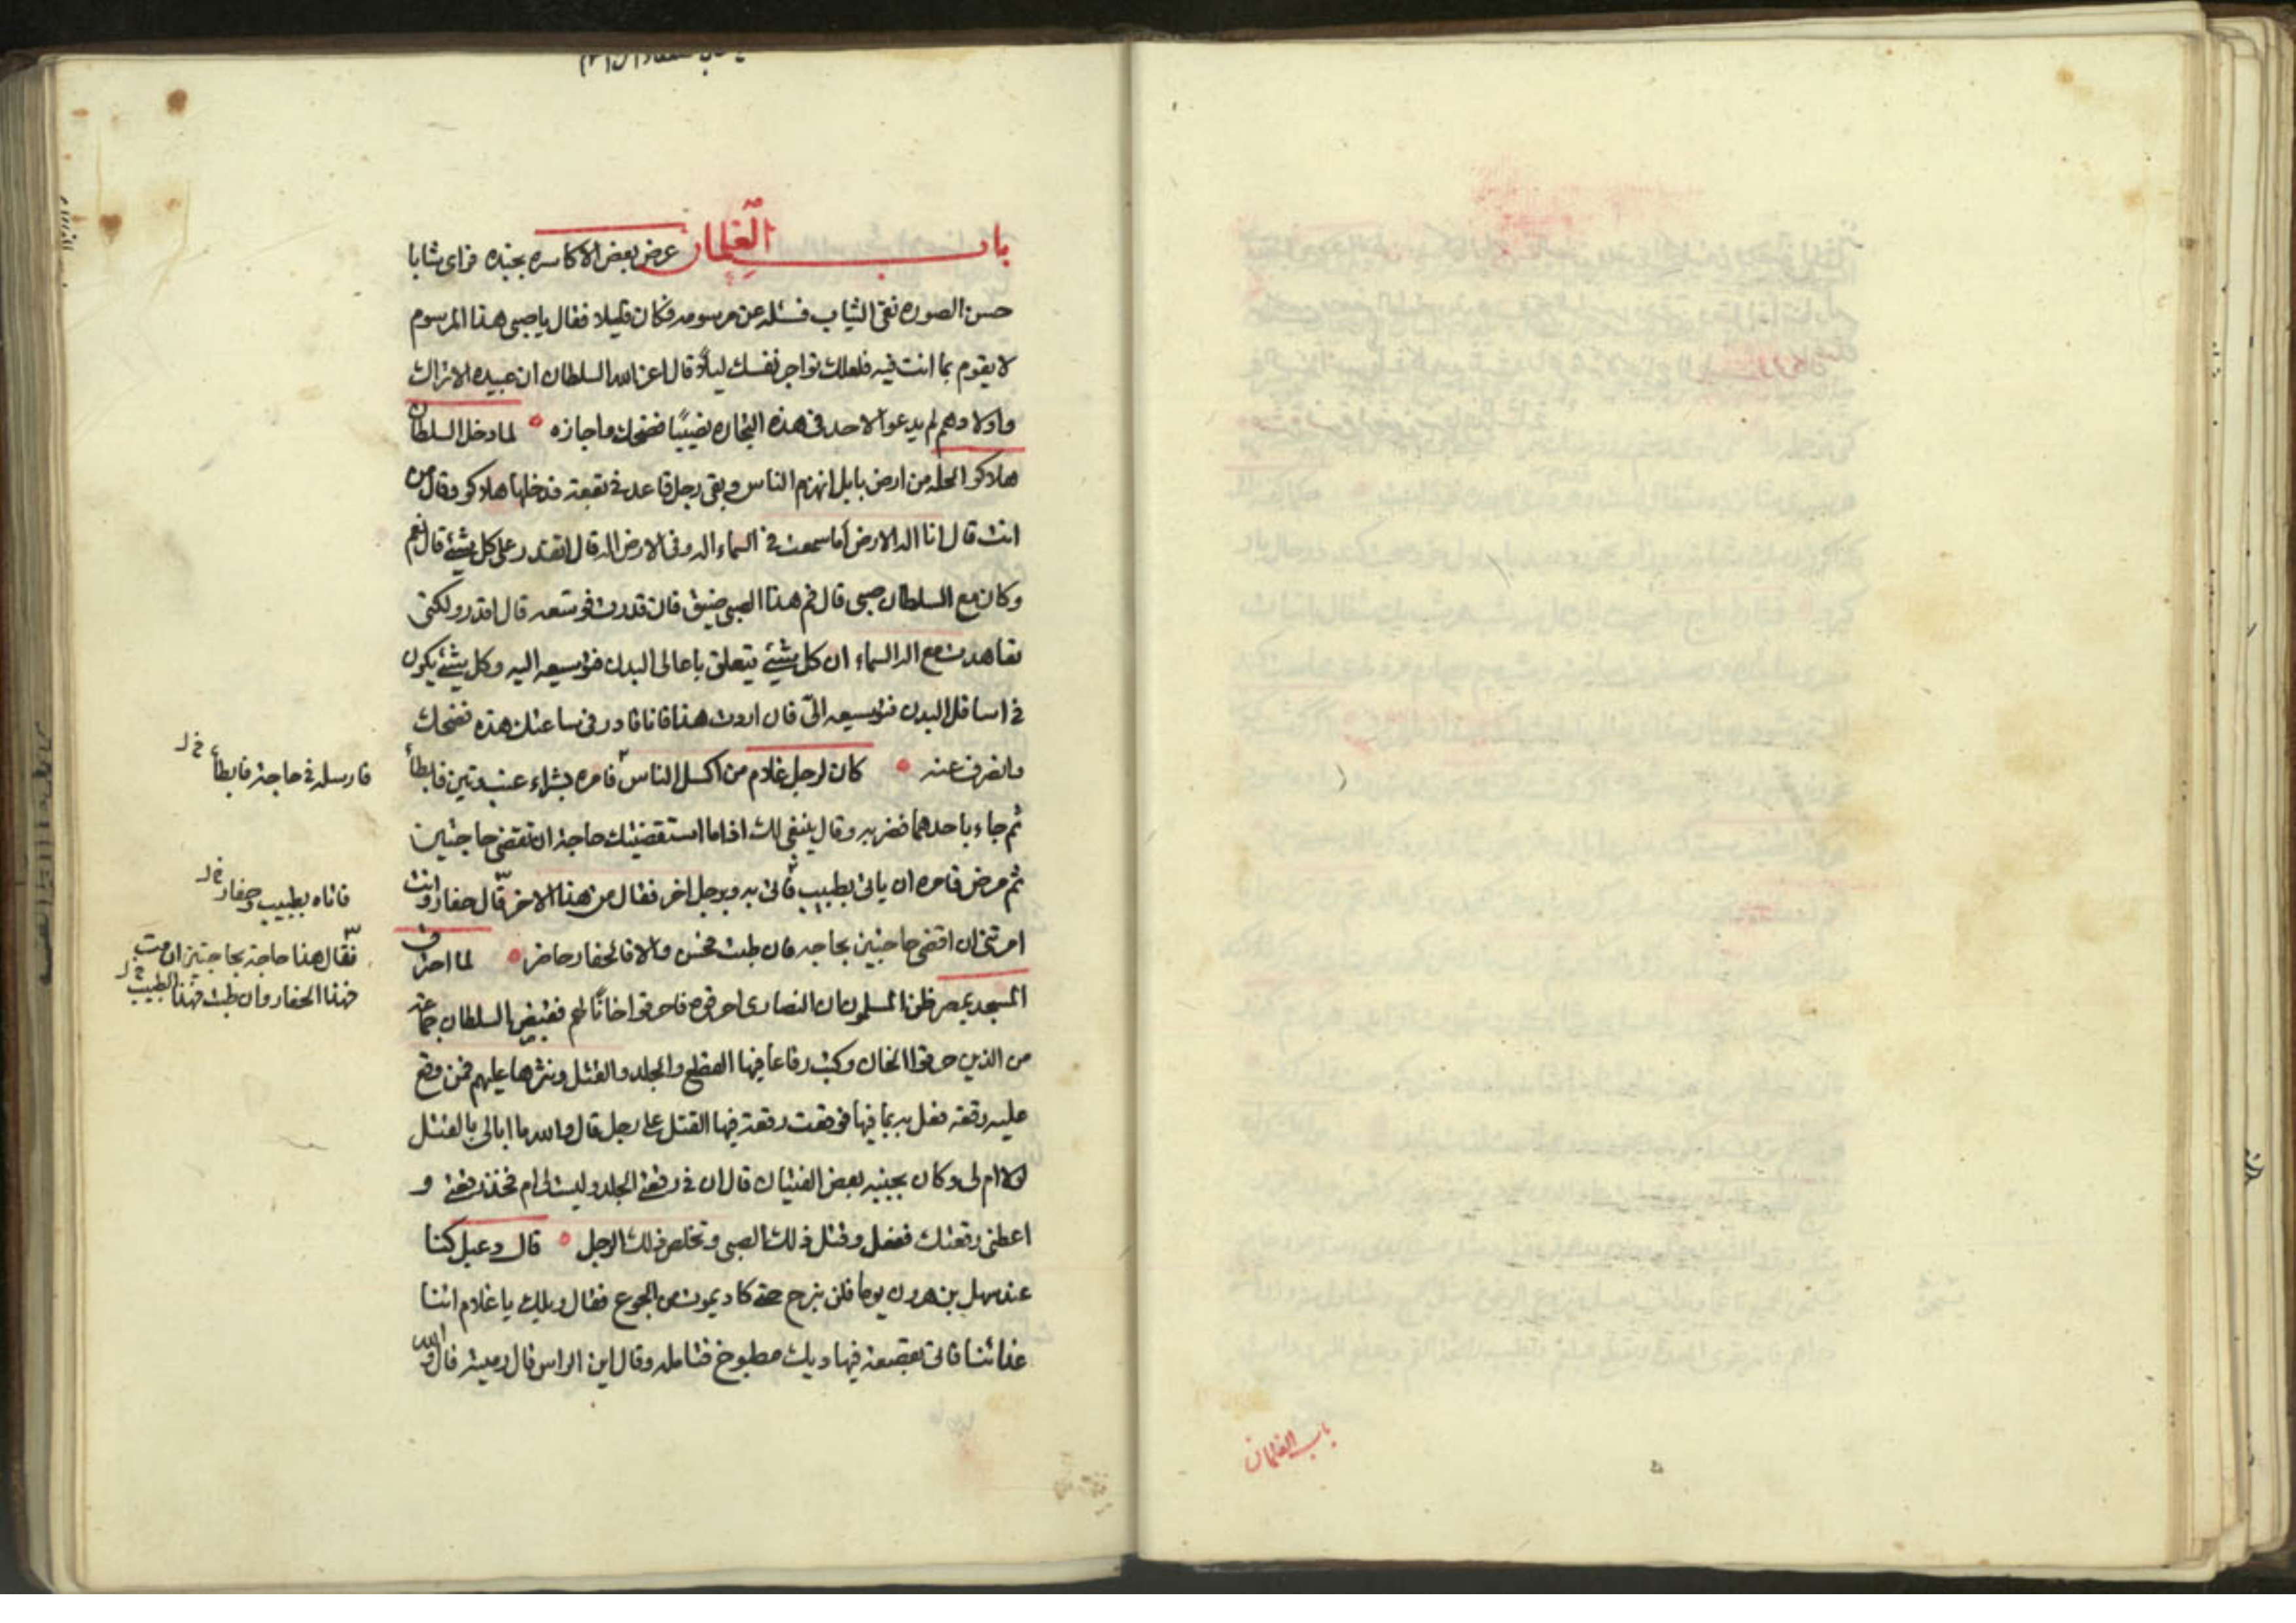 باب الغلمان عرض بعض الاكاسره بجنده فراى شابا
حسن الصوره نقى الثياب فسئله عن مرسومه فكان قليلا فقال يا صبى هذا المرسوم
لا يقوم بما انت فيه فلعلك تواجر نفسك ليلاً قال اعز الله السلطان ان عبيده الاتراك
واولادهم لم يدعوا لاحد فى هذه التجاره نصيبًا فضحك واجازه لما دخل السلطان
هلاكو الحله من ارض بابل انهزم الناس وبقى رجل قاعد فى بقعته فدخلها هلاكو وقال من
انت قال انا اله الارض أما سمعت فى السماء اله وفى الارض اله قال اتقدر على كل شئ قال نعم
وكان مع السلطان صبى قال فم هذا الصبى ضيق فان قدرت فوسعه قال اقدر ولكنى
تعاهدت مع اله السماء ان كل شئ يتعلق باعالى البدن فتوسيعه اليه وكل شئ يكون
فى اسافل البدن فتوسيعه الىّ فان اردت هذا فانا قادر فى ساعتك هذه فضحك
وانصرف عنه كان لرجل غلام من اكسل الناس فامره بشراء عنب وتين فابطأ
ثم جاء باحدهما فضربه وقال ينبغى لك اذا ما استقضيتك حاجة ان تقضى حاجتين
ثم مرض فامره ان ياتى بطبيب فاتى به وبرجل اخر فقال من هذا الاخر قال حفار وانت
امرتنى ان اقضى حاجتين بحاجه فان طبت فحسن والا فالحفار حاضر لما احترق
المسجد بمصر ظن المسلمون ان النصارى احرقوه فاحرقوا خانًا لهم فقبض السلطان جماعة
من الذين حرقوا الخان وكتب رقاعا فيها القطع والجلد والقتل ونثرها عليهم فمن وقع
عليه رقعة فعل به بما فيها فوقعت رقعة فيها القتل على رجل قال والله ما ابالى بالقتل
لولا ام لى وكان بجنبه بعض الفتيان قال ان فى رقعتى الجلد وليست لى ام فخذ رقعتى و
اعطنى رقعتك ففعل وقتل ذلك الصبى وتخلص ذلك الرجل قال دعبل كنا
عند سهل بن هرون يوما فلن نبرح حتى كاد يموت من الجوع فقال ويلك يا غلام اتنا
غدائنا فاتى بقصعة فيها ديك مطبوخ فتامله وقال اين الراس قال رميته قال والله
فارسله فى حاجة فابطأ خ ل
فاتاه بطبيب وحفار خ ل
فقال هذا حاجة بحاجتين ان مت
فهذا الحفار وان طبت فهذا الطبيب خ ل
باب الغلمان